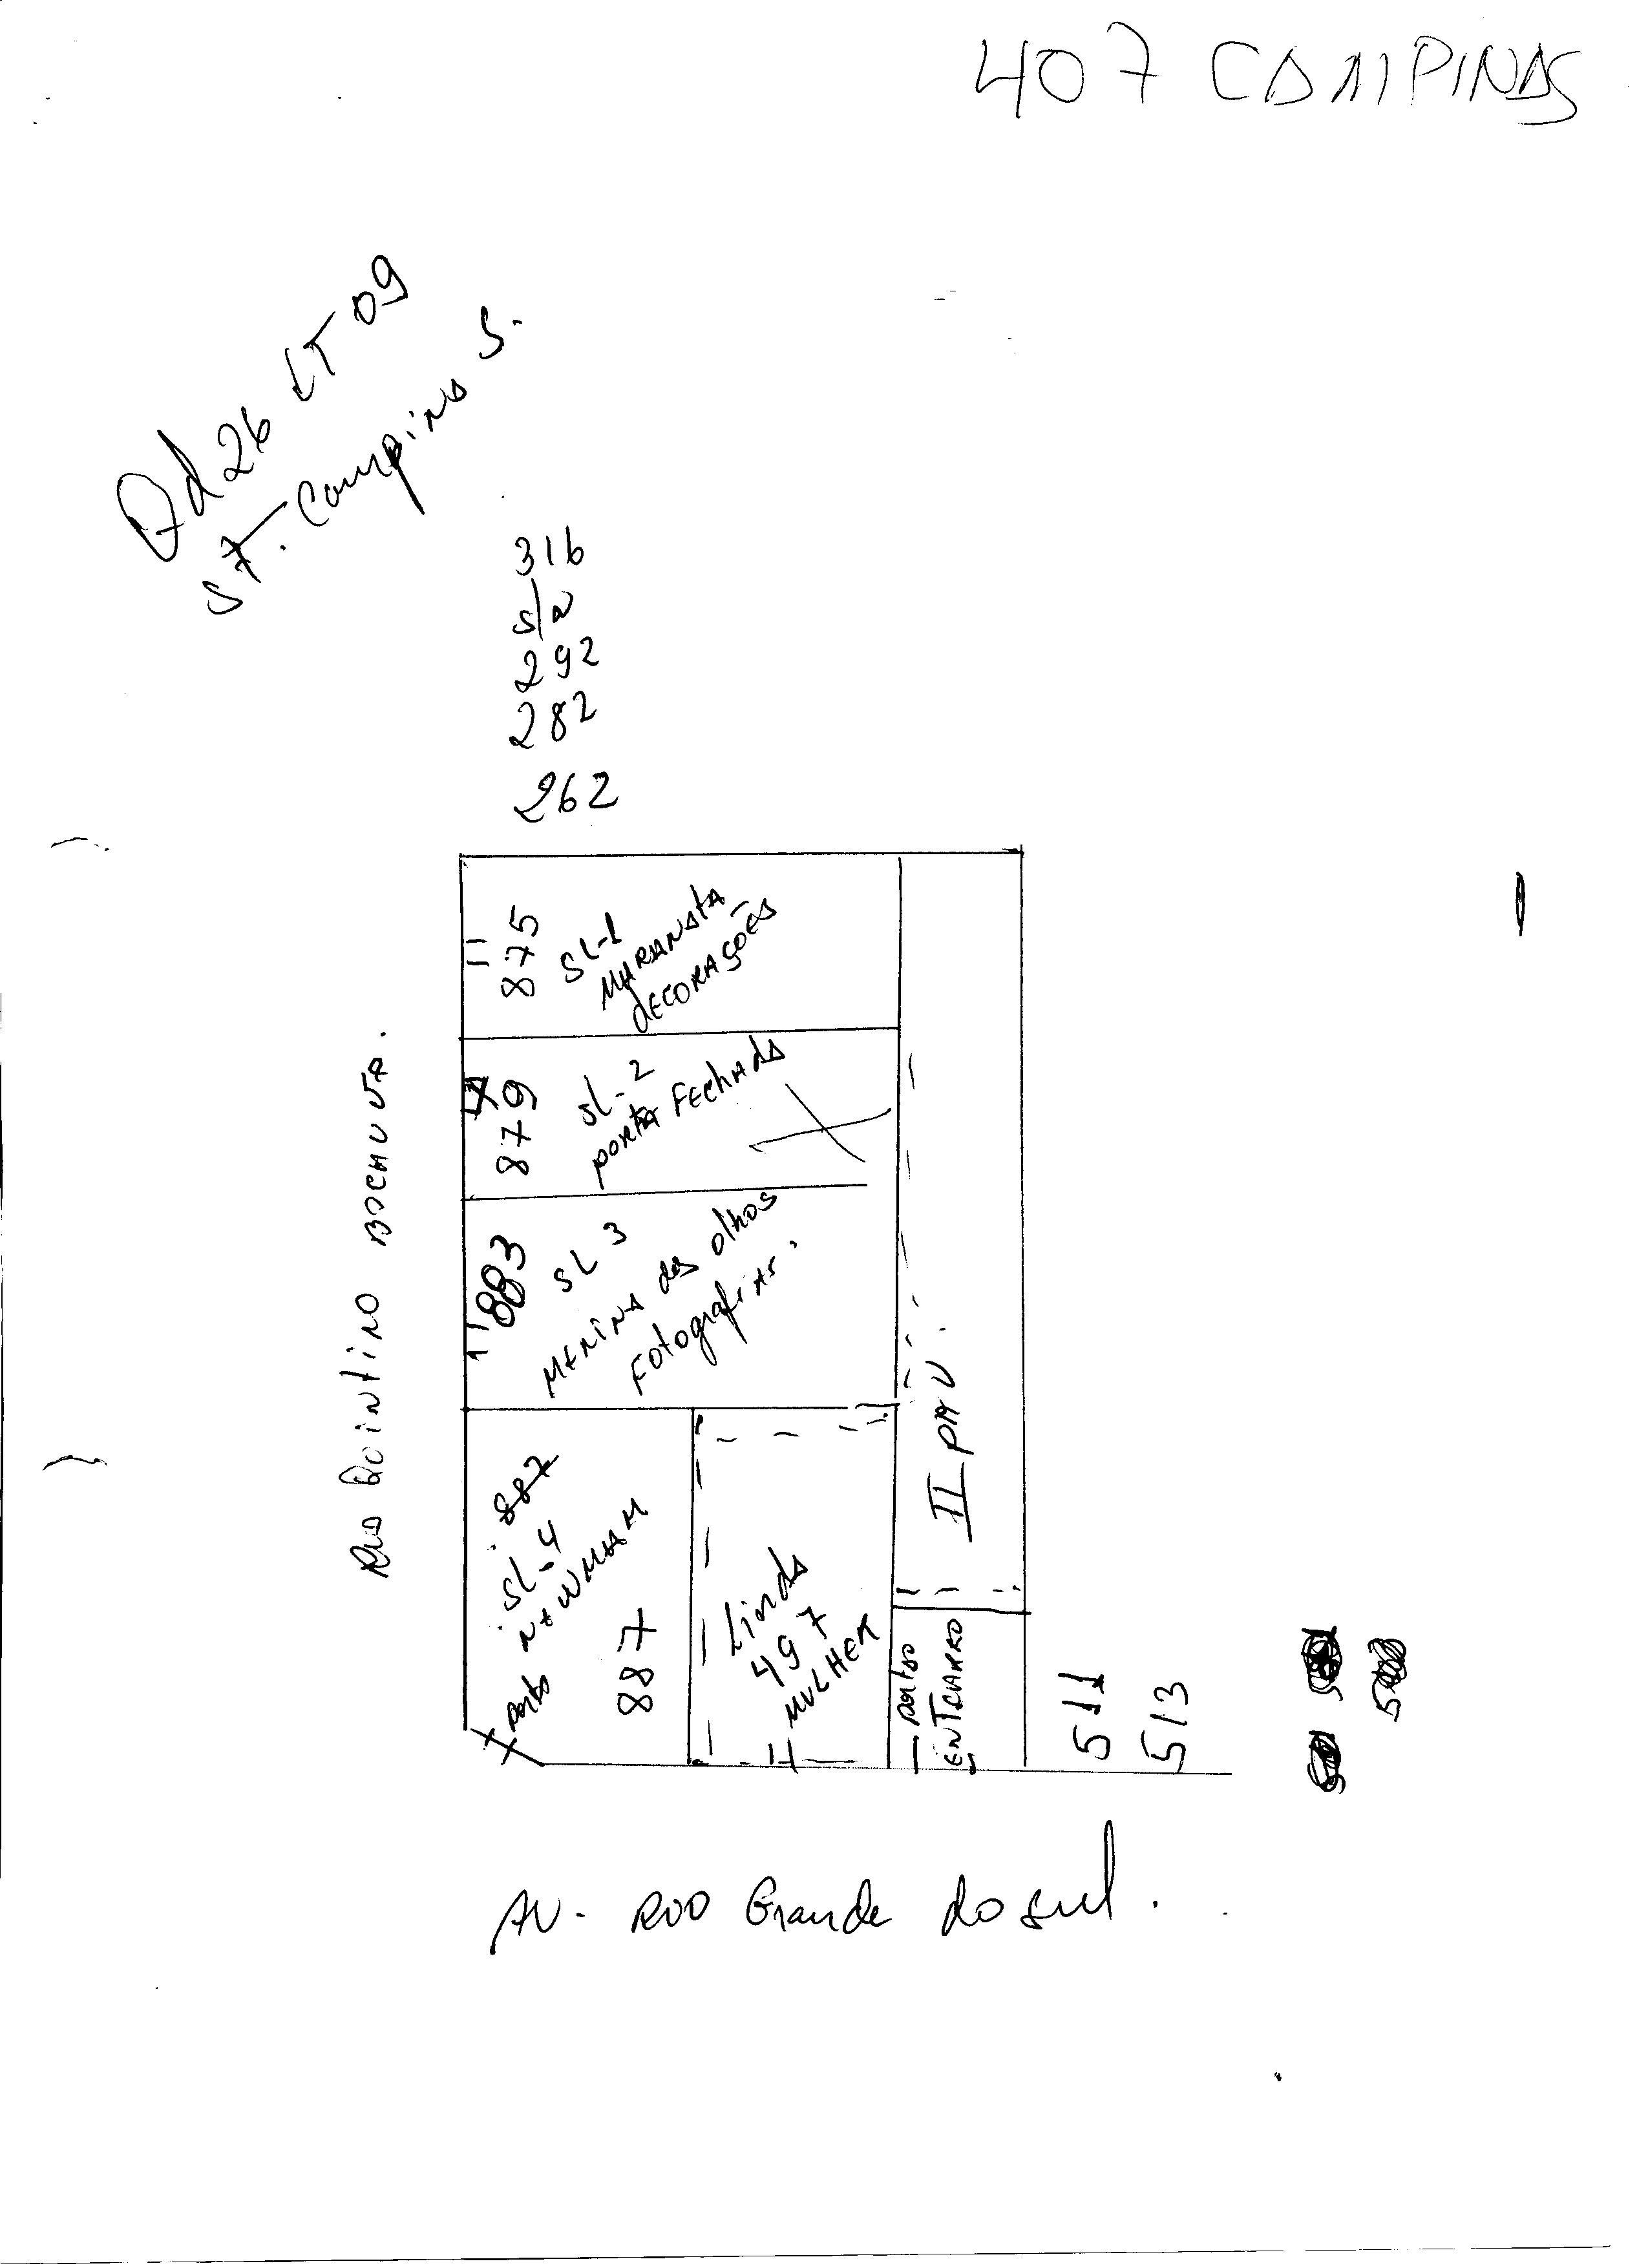 407 CAMPINAS
Qd 26 LT 09
ST. Campinas S.
316
s/n
292
282
262
875
SL-1
MARANATA
DECORAÇÕES
879
SL-2
PORTA FEchAdA
883
SL 3
MENINA dos olhos
Fotografias.
887
SL-4
NEWMAM
Porta
887
Linda
497
MULHER
II PAV.
Portão
ENT CARRO
511
513
Rua Quintino Bocaiuva.
AV. Rio Grande do sul.